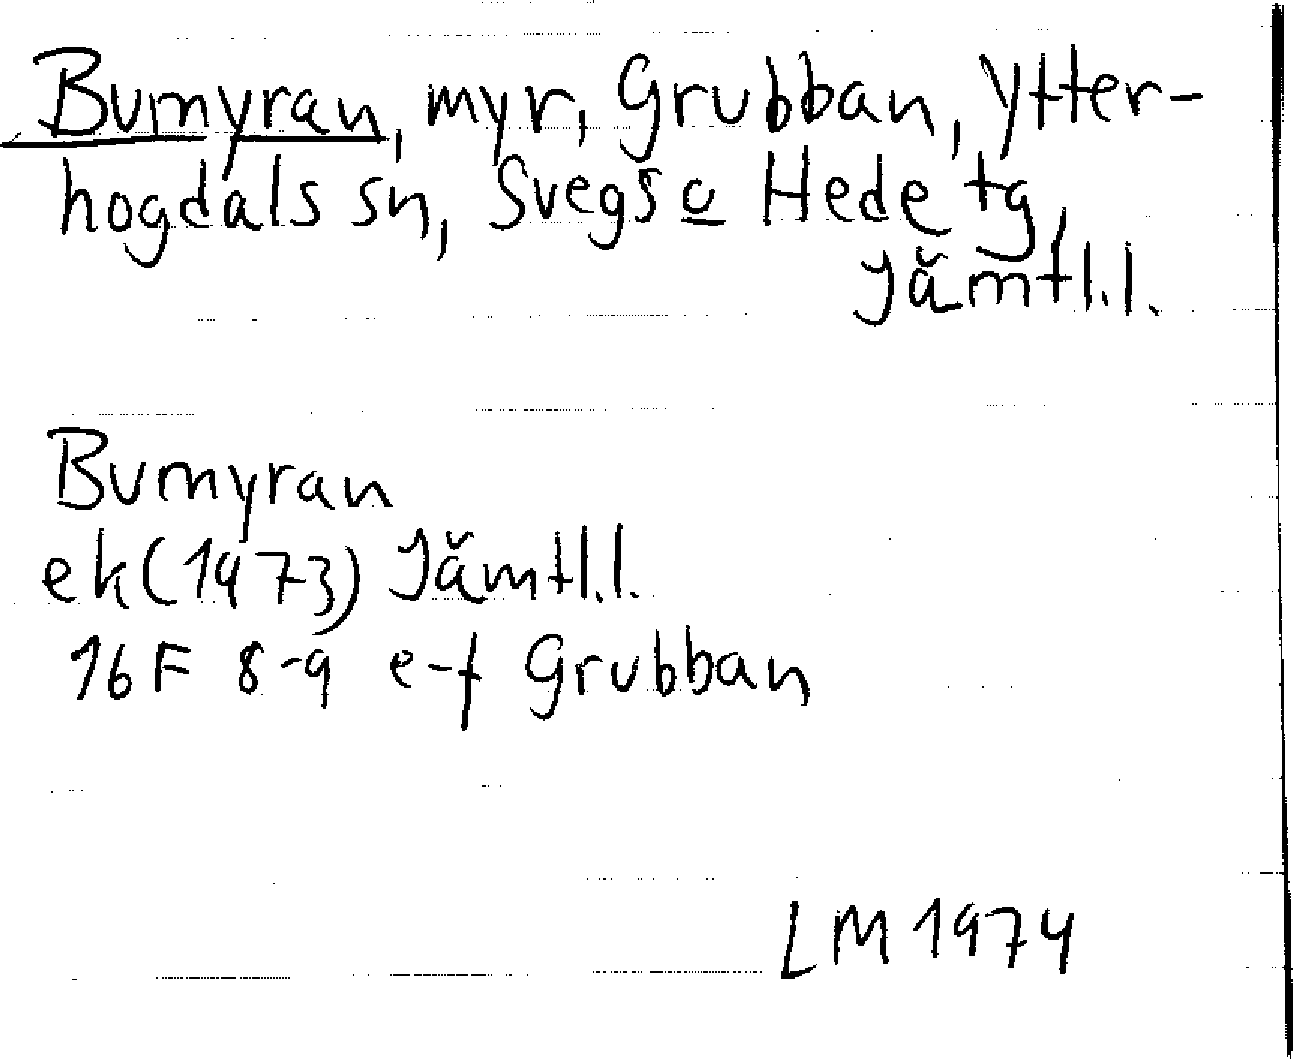 Bumyran, myr, Grubban, Ytter-
hogdals sn, Svegs o Hede tg,
Jämtl.l.
Bumyran
ek (1973) Jämtl.l.
16F 8-9 e-f Grubban
LM 1974